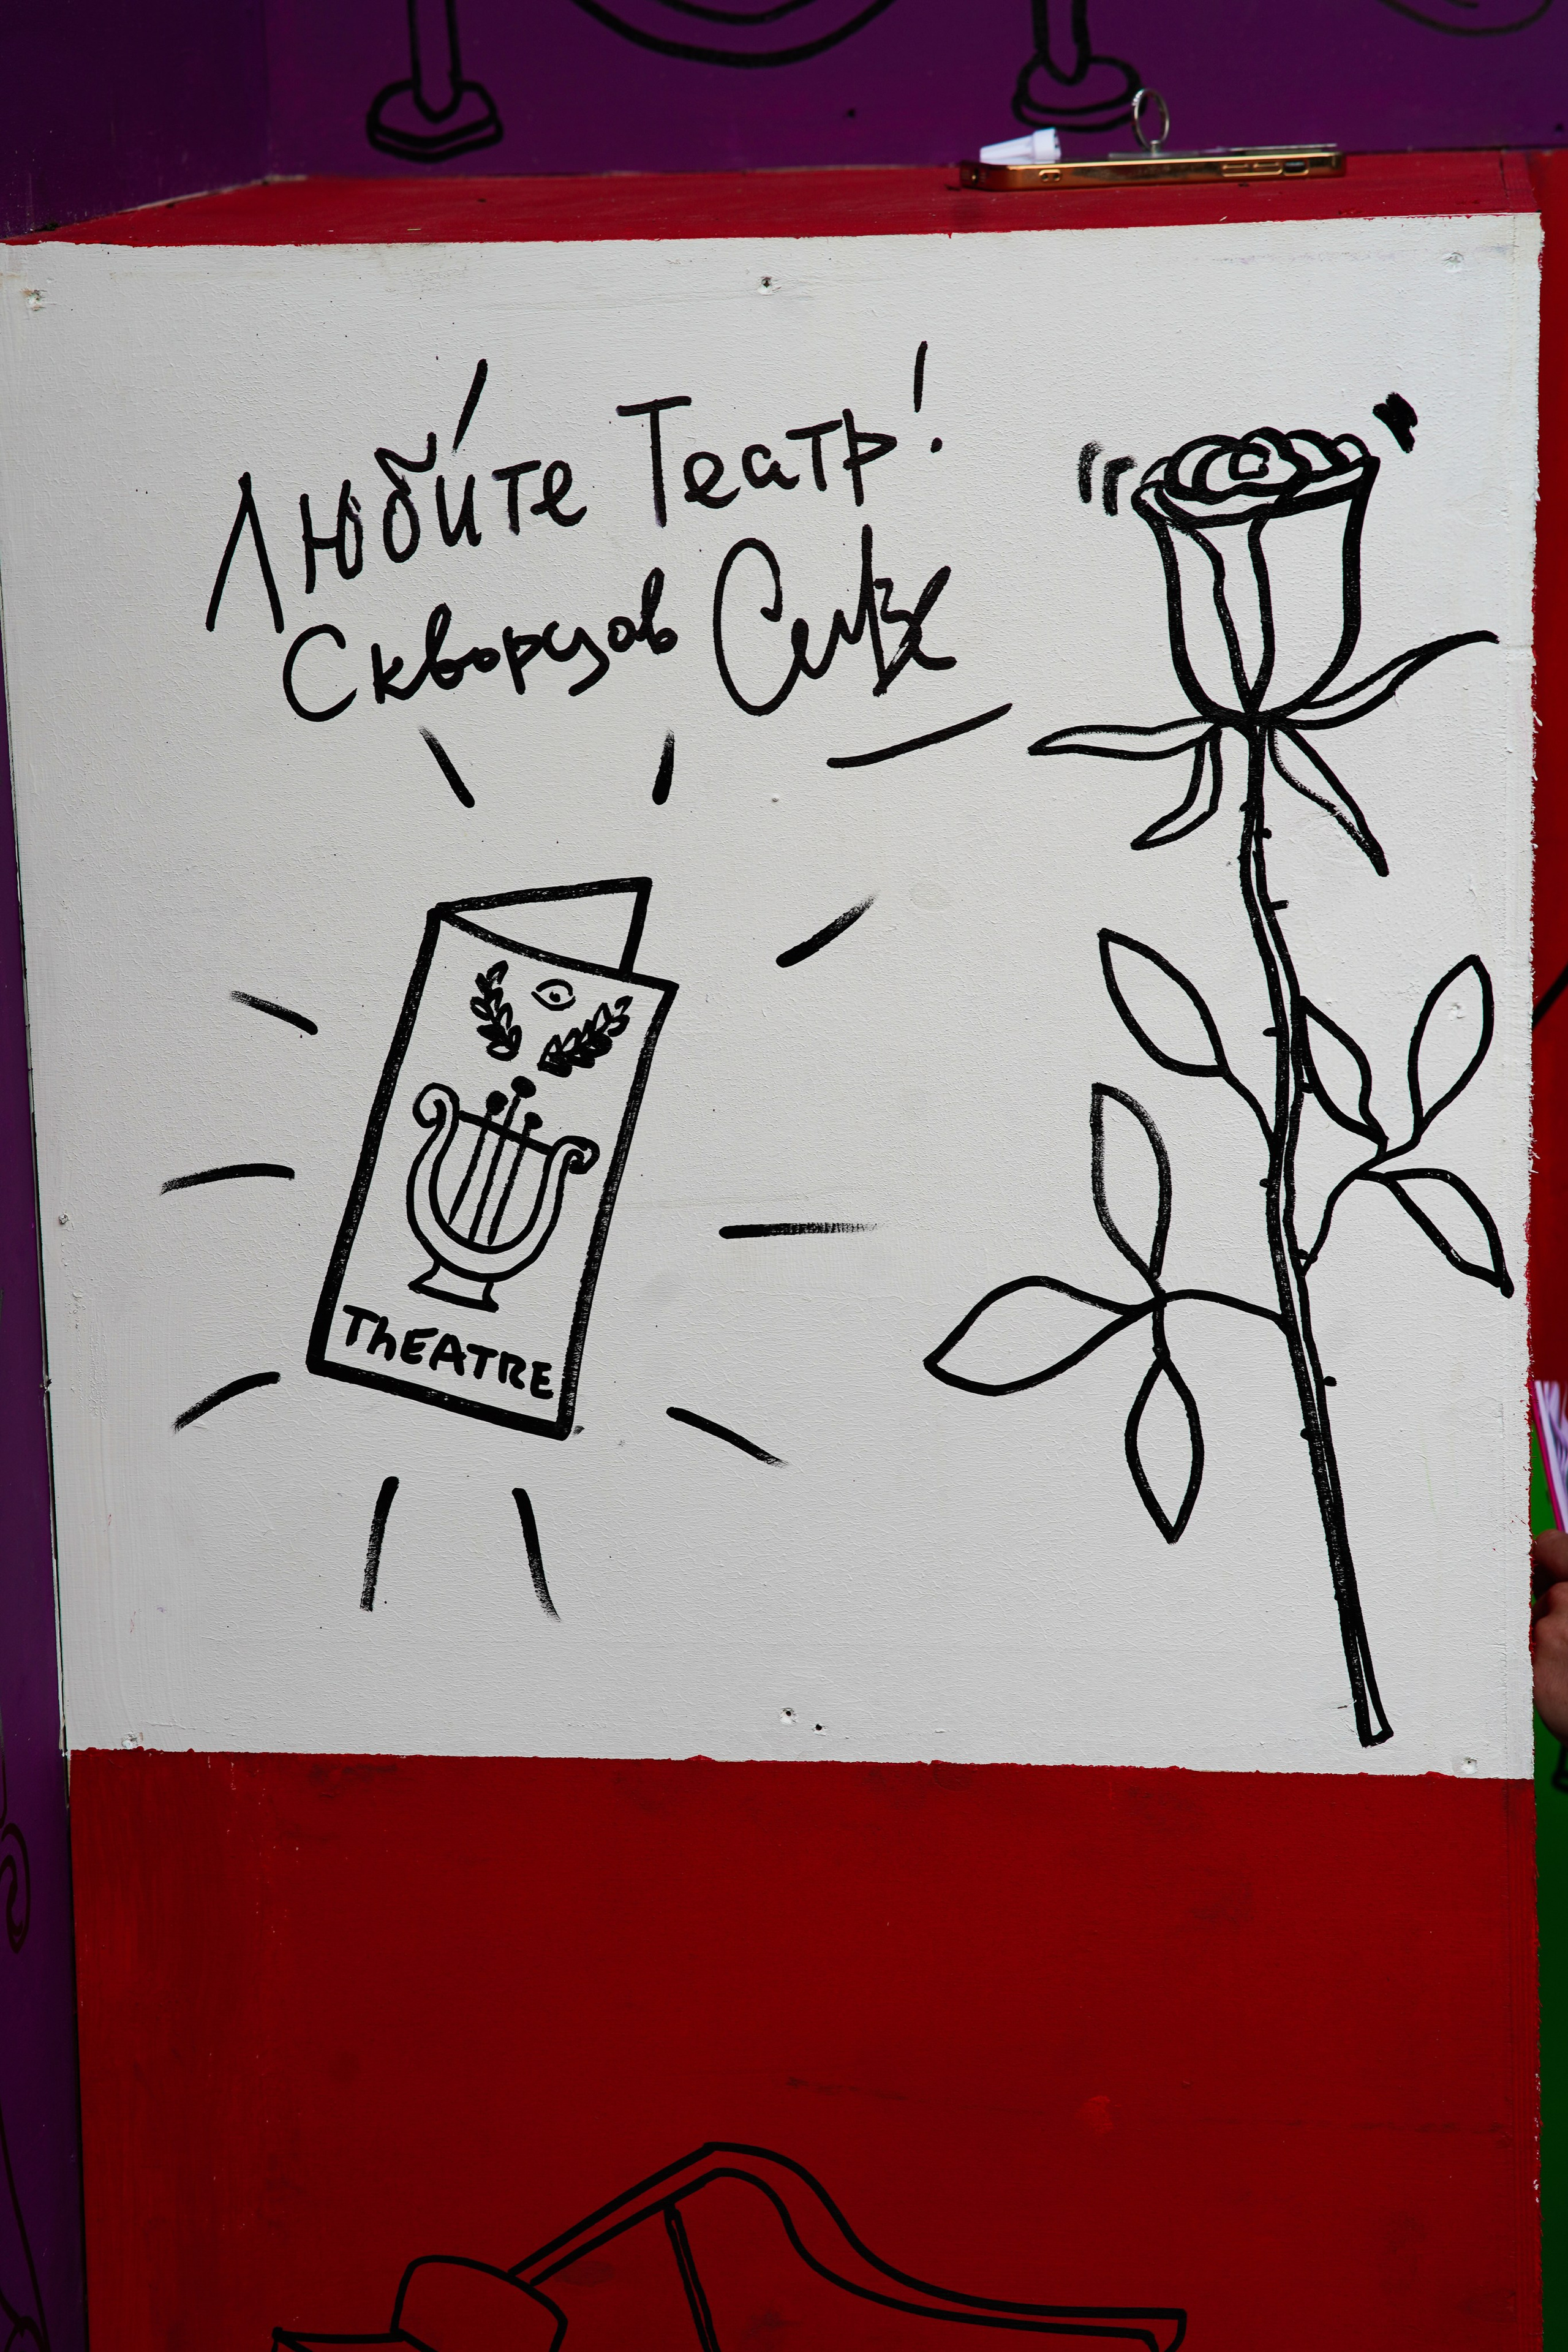 Любите Театр!
Скворцов
THEATRE